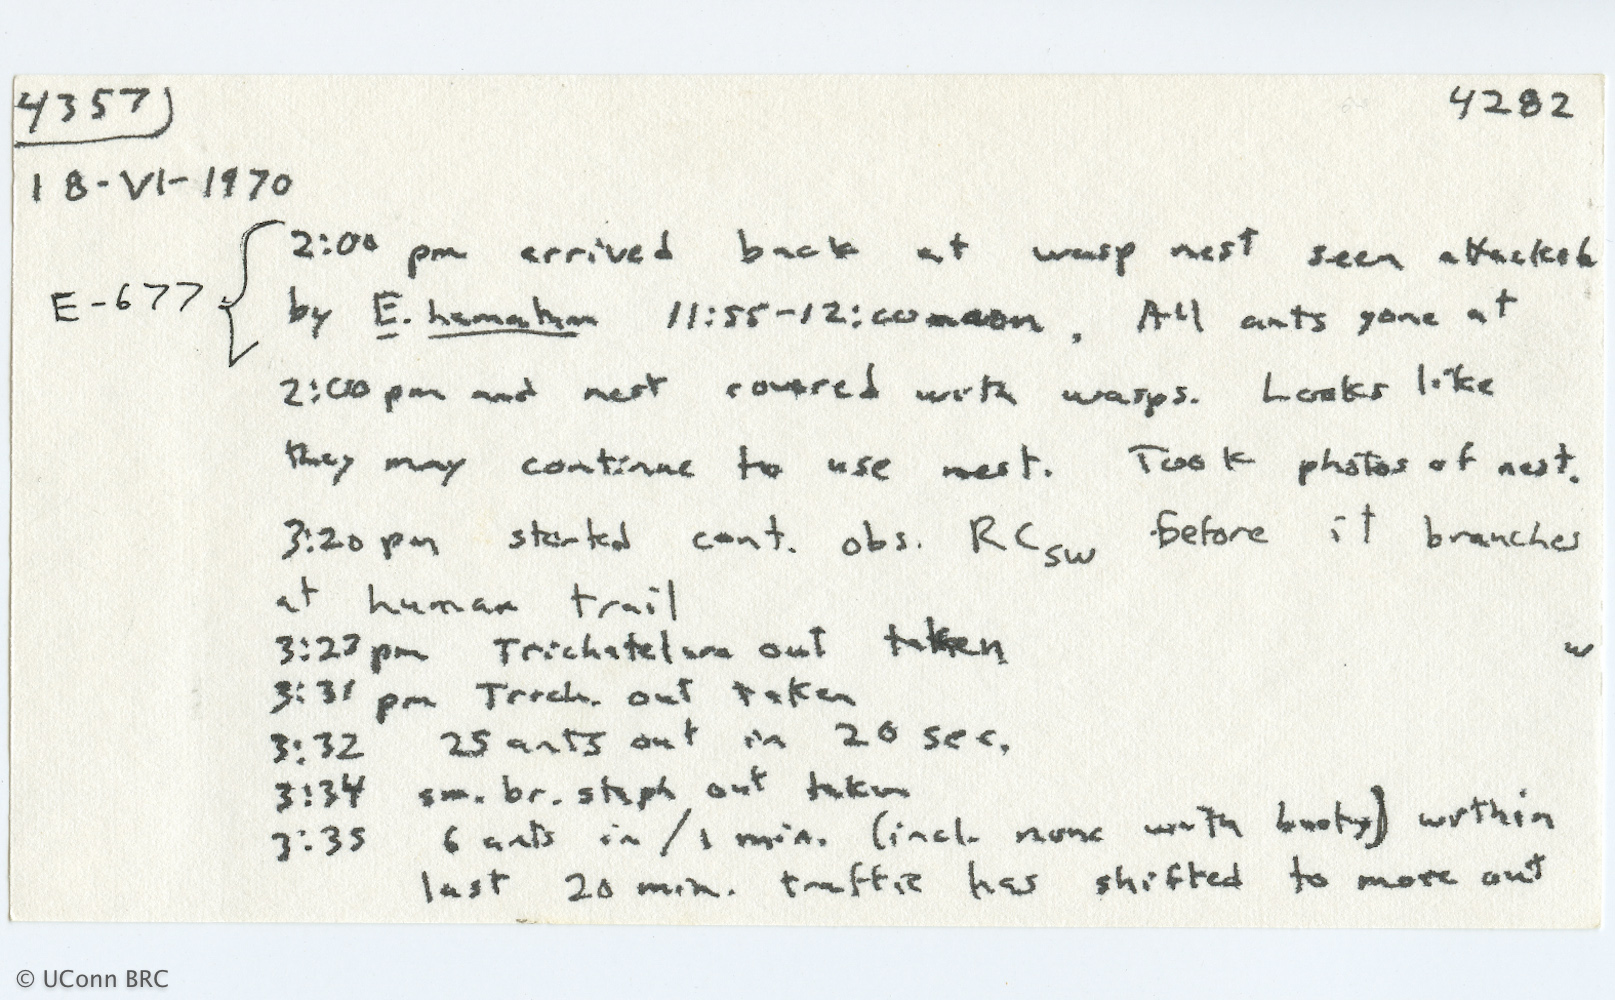 4357) 4282
18-VI-1970
E-677
2:00 pm arrived back at wasp nest seen attacked
by E. hamatum 11:55-12:00 noon. All ants gone at
2:00 pm and nest covered with wasps. Looks like
they may continue to use nest. Took photos of nest.
3:20 pm started cont. obs. RC SW before it branches
at human trail
3:27 pm out taken
w
3:31 pm Trich. out taken
3:32 25 ants out in 20 sec.
3:34 sm. br. staph out taken
3:35 6 ants in / 1 min. (incl. none with booty) within
last 20 min. traffic has shifted to more out
© UConn BRC